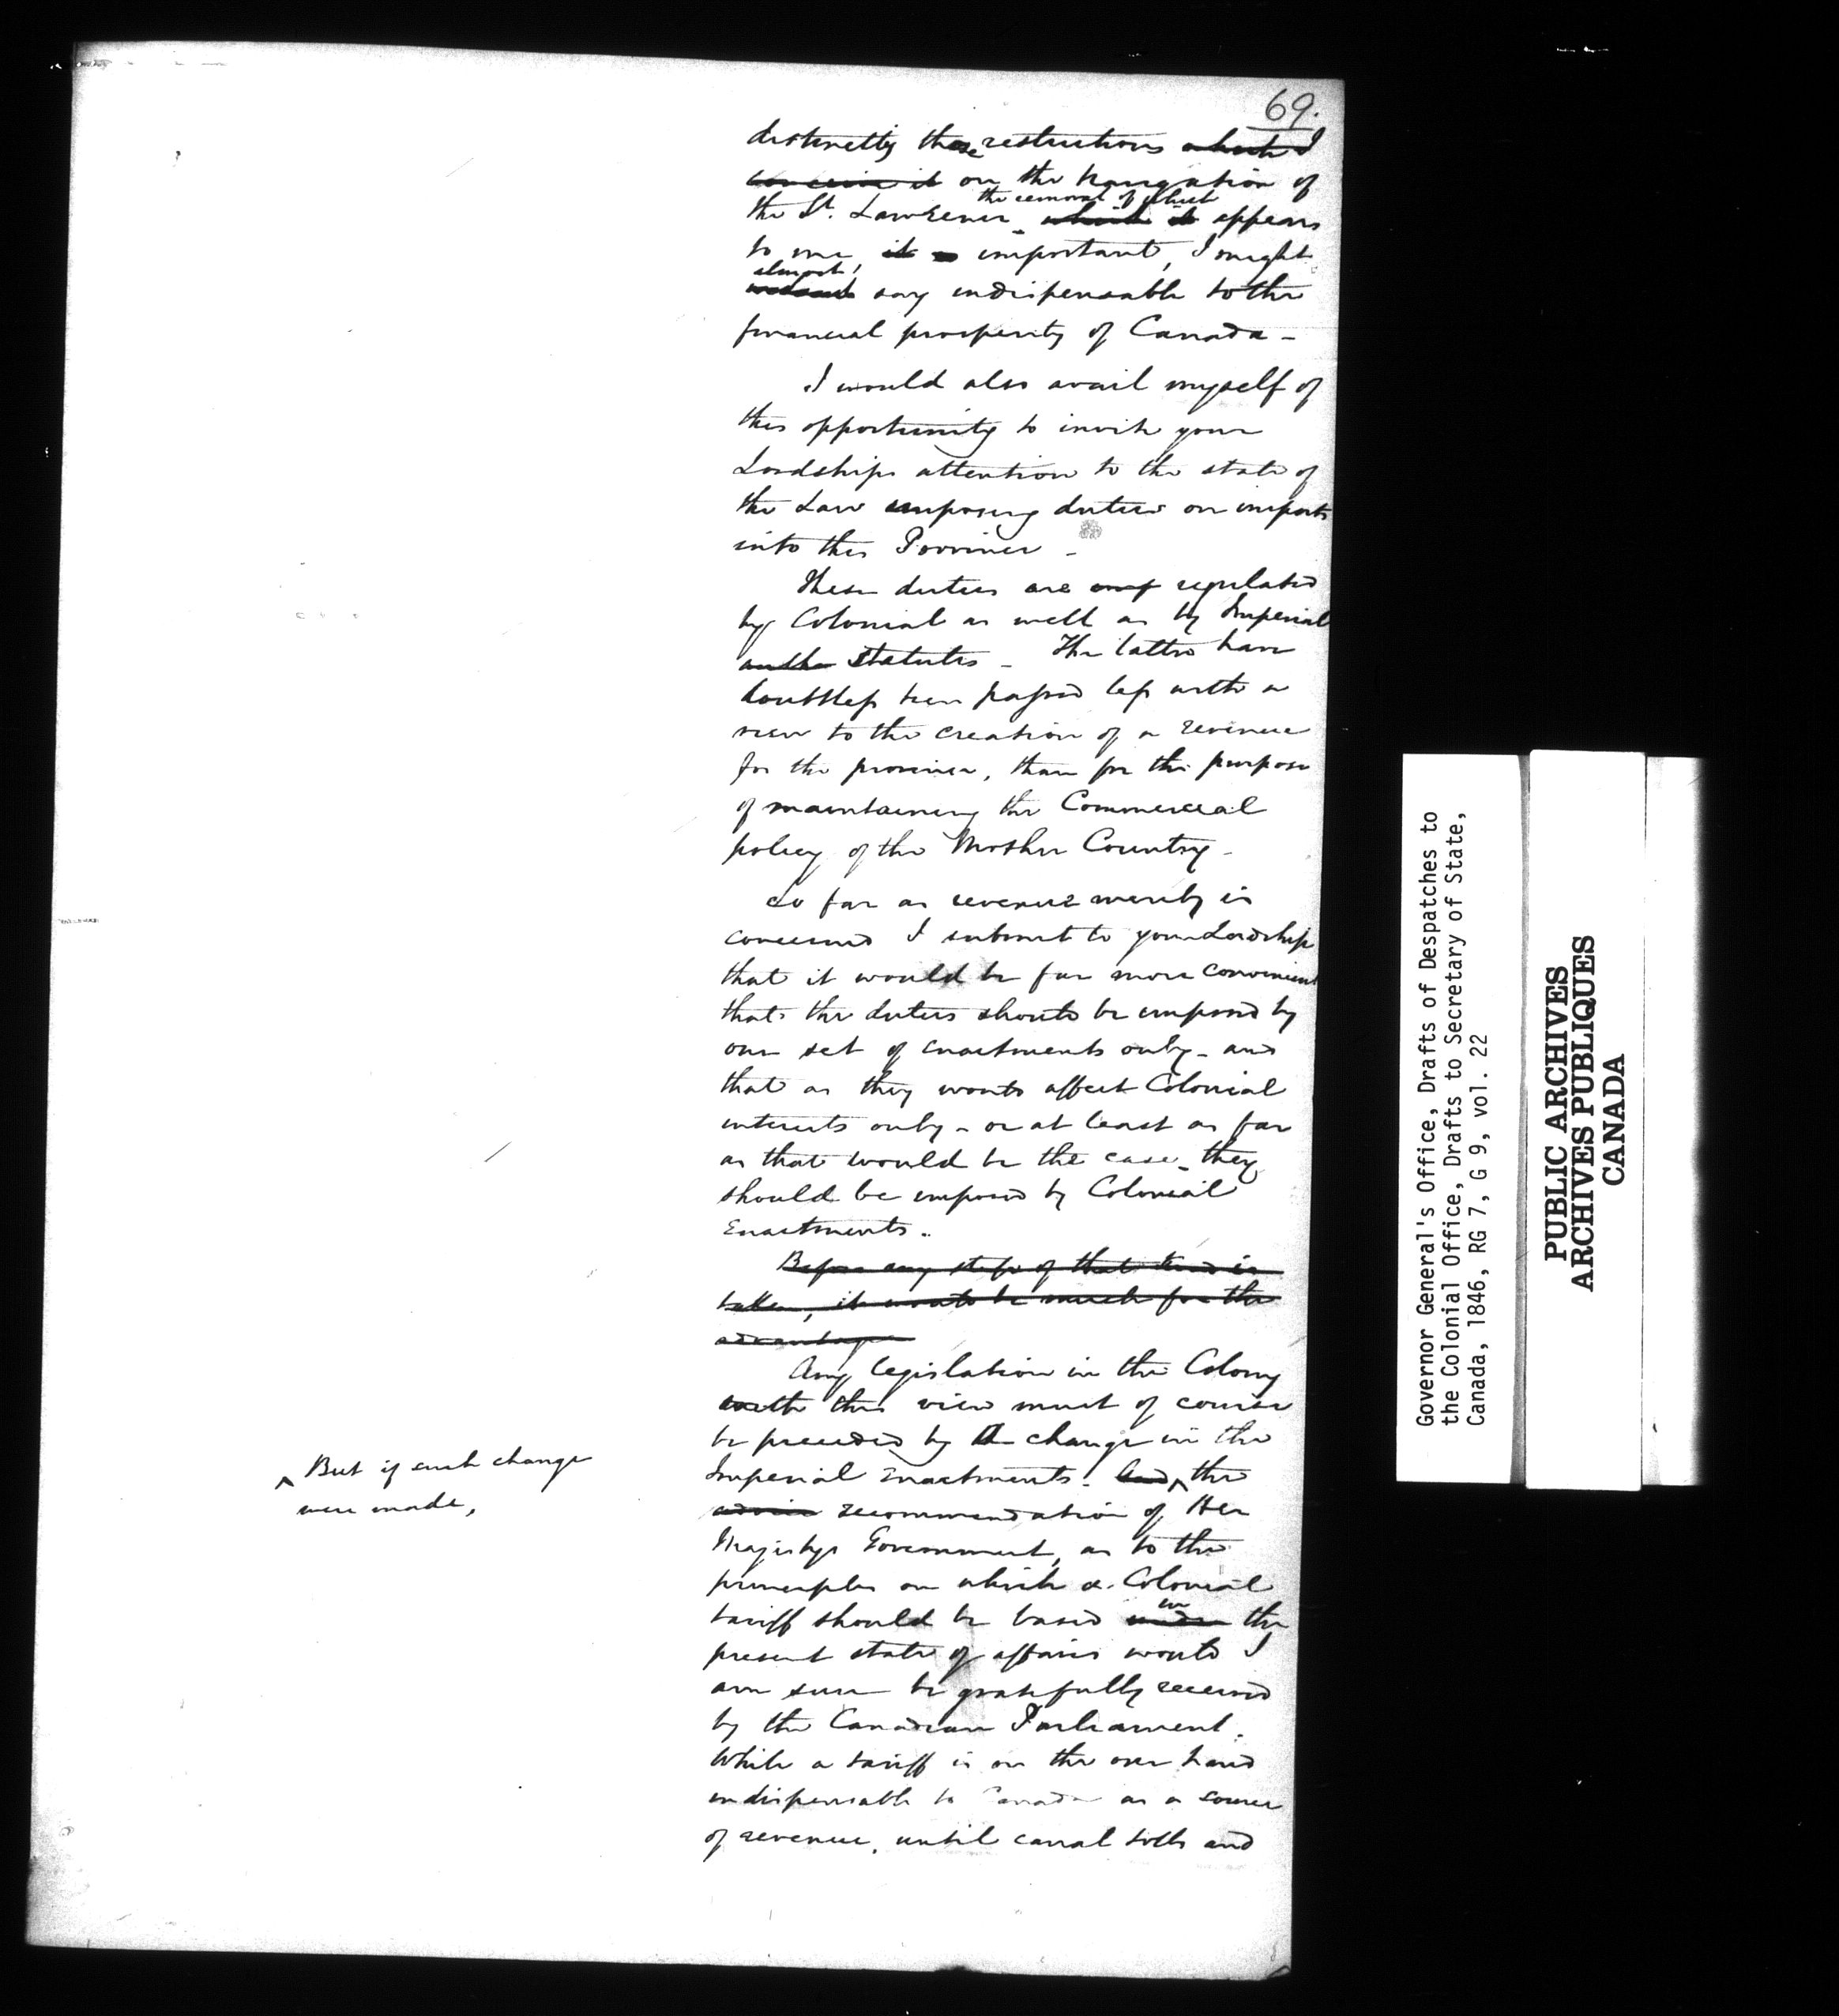 69.
distinctly those restrictions which I
conceive it on the navigation of
the removal of which
the St. Lawrence which it appears
to me, it is important, I might
almost
say indispensable to the
financial prosperity of Canada -
I would also avail myself of
this opportunity to invite your
Lordships attention to the state of
the Law imposing duties on imports
into this Province -
These duties are regulated
by Colonial as well as by Imperial
Statutes - The latter have
doubtless been passed less with a
view to the creation of a revenue
for the province, than for the purpose
of maintaining the Commercial
policy of the Mother Country -
So far as revenue merely is
concerned I submit to your Lordship
that it would be far more convenient
that the duties should be imposed by
one set of enactments only - and
that as they would affect Colonial
interests only - or at least as far
as that would be the case - they
should be imposed by Colonial
Enactments.
Before any steps of that kind is
taken, it would be much for the
advantage
Any legislation in the Colony
with this view must of course
be preceded by a change in the
Imperial enactments. And ^ the
^ But if such change
were made,
advice recommendation of Her
Majestys Government, as to the
principles on which a Colonial
in
tariff should be based under the
present state of affairs would I
am sure be gratefully received
by the Canadian Parliament.
While a tariff is on the one hand
indispensable to Canada as a source
of revenue, until canal tolls and
Governor General's Office, Drafts of Despatches to
the Colonial Office, Drafts to Secretary of State,
Canada, 1846, RG 7, G 9, vol. 22
PUBLIC ARCHIVES
ARCHIVES PUBLIQUES
CANADA